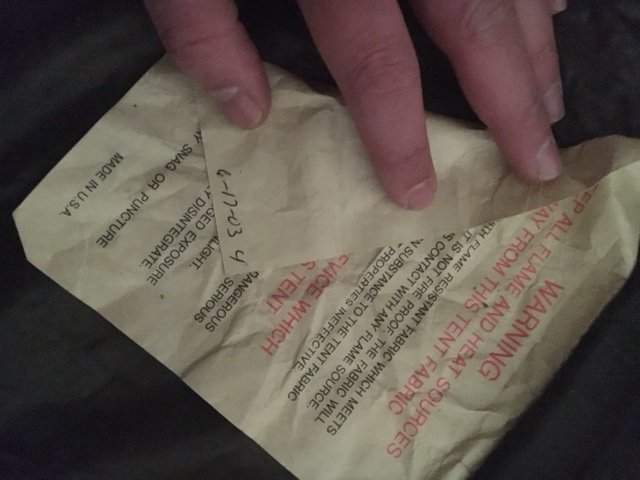 WARNING
EP ALL FLAME AND HEAT SOURCES
WAY FROM THIS TENT FABRIC
ITH FLAME RESISTANT FABRIC WHICH MEETS
IT IS NOT FIRE PROOF. THE FABRIC WILL
S CONTACT WITH ANY FLAME SOURCE.
N SUBSTANCE TO THE TENT FABRIC
T PROPERTIES INEFFECTIVE
EVICE WHICH
S TENT
DANGEROUS
SERIOUS
LIGHT.
GED EXPOSURE
Y DISINTEGRATE
Y SNAG OR PUNCTURE
MADE IN U.S.A
6-17-03 4